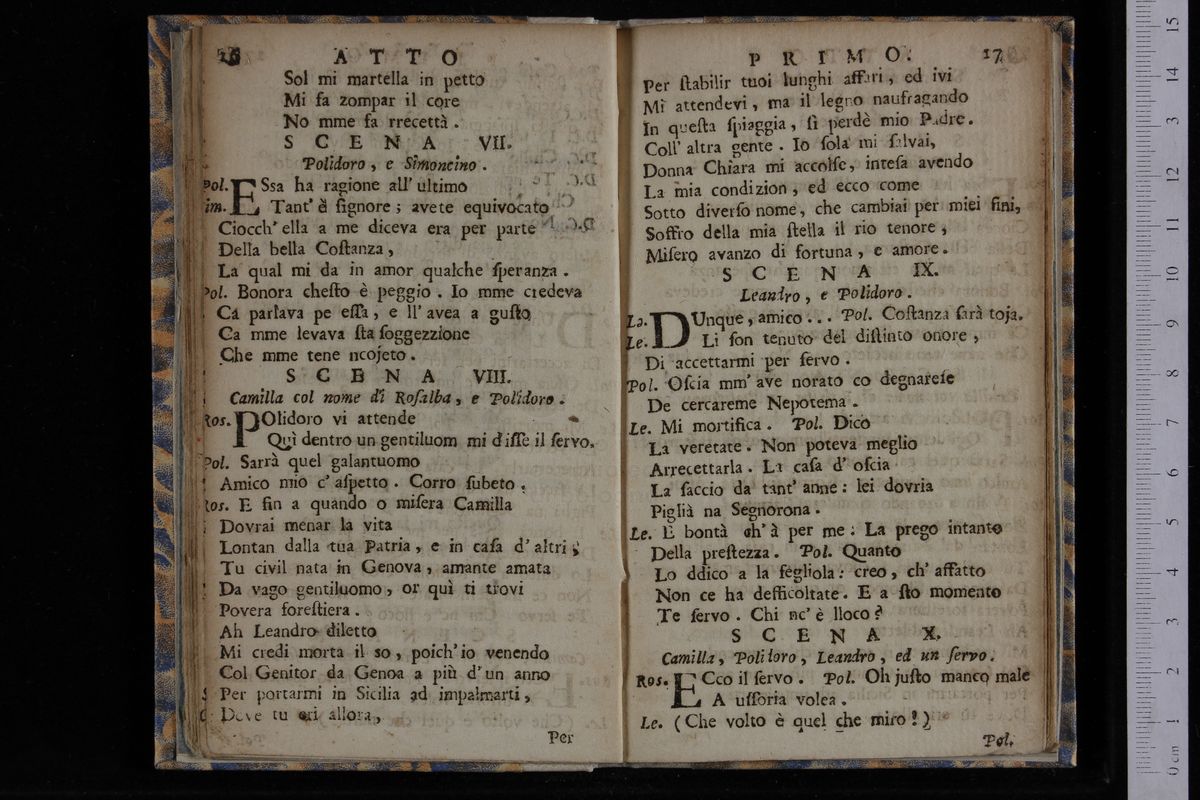 16 ATTO
Sol mi martella in petto
Mi fa zompar il core
No mme fa rrecettà.
SCENA VII.
Polidoro, e Simoncino.
Pol. ESsa ha ragione all' ultimo
im. Tant' è ſignore; avete equivocato
Ciocch' ella a me diceva era per parte
Della bella Coſtanza,
La qual mi da in amor qualche ſperanza.
Pol. Bonora cheſto è peggio. Io mme credeva
Ca parlava pe eſſa, e ll' avea a guſto
Ca mme levava ſta ſoggezzione
Che mme tene ncojeto.
SCENA VIII.
Camilla col nome di Roſalba, e Polidoro.
Ros. POlidoro vi attende
Quì dentro un gentiluom mi diſſe il ſervo.
Pol. Sarrà quel galantuomo
Amico mio c' aſpetto. Corro ſubeto.
Ros. E fin a quando o miſera Camilla
Dovrai menar la vita
Lontan dalla tua Patria, e in caſa d' altri;
Tu civil nata in Genova, amante amata
Da vago gentiluomo, or quì ti trovi
Povera foreſtiera.
Ah Leandro diletto
Mi credi morta il so, poich' io venendo
Col Genitor da Genoa a più d' un anno
Per portarmi in Sicilia ad impalmarti,
Deve tu eri allora,
Per
PRIMO. 17
Per ſtabilir tuoi lunghi affari, ed ivi
Mi attendevi, ma il legno naufragando
In queſta ſpiaggia, ſi perdè mio Padre.
Coll' altra gente. Io ſola mi ſalvai,
Donna Chiara mi accolſe, inteſa avendo
La mia condizion, ed ecco come
Sotto diverſo nome, che cambiai per miei fini,
Soffro della mia ſtella il rio tenore,
Miſero avanzo di fortuna, e amore.
SCENA IX.
Leandro, e Polidoro.
Le. DUnque, amico... Pol. Coſtanza ſarà toja.
Le. Li ſon tenuto del diſtinto onore,
Di accettarmi per ſervo.
Pol. Oſcia mm' ave norato co degnareſe
De cercareme Nepotema.
Le. Mi mortifica. Pol. Dico
La veretate. Non poteva meglio
Arrecettarla. La caſa d' oſcia
La ſaccio da tant' anne: lei dovria
Piglià na Segnorona.
Le. E bontà ch' à per me: La prego intanto
Della preſtezza. Pol. Quanto
Lo ddico a la fegliola: creo, ch' affatto
Non ce ha defficoltate. E a ſto momento
Te ſervo. Chi nc' è lloco?
SCENA X.
Camilla, Polidoro, Leandro, ed un ſervo.
Ros. ECco il ſervo. Pol. Oh juſto manco male
A uſſoria volea.
Le. (Che volto è quel che miro!)
Pol.